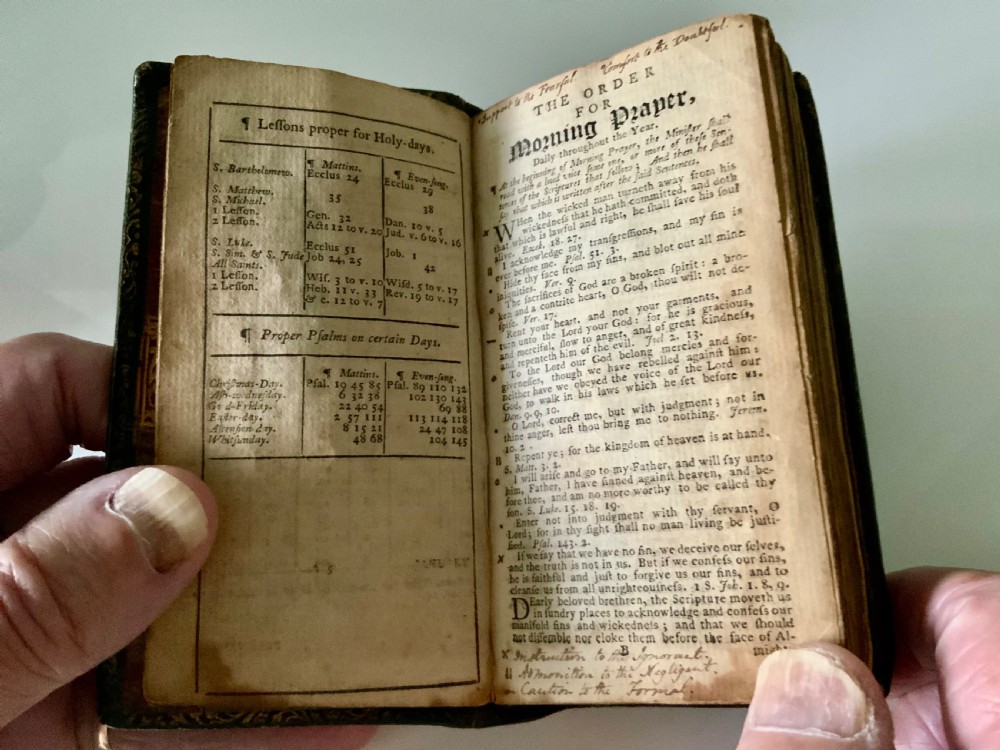 ¶ Leſſons proper for Holy-days.
¶ Mattins. ¶ Even-ſong.
S. Bartholomew. Ecclus 24 Ecclus 29
S. Matthew. 35 38
S. Michael.
1 Leſſon. Gen. 32 Dan. 10 v. 5
2 Leſſon. Acts 12 to v. 20 Jud. v. 6 to v. 16
S. Luke. Ecclus 51 Job. 1
S. Sim. & S. Jude Job 24, 25 42
All Saints.
1 Leſſon. Wiſ. 3 to v. 10 Wiſd. 5 to v. 17
2 Leſſon. Heb. 11 v. 33 Rev. 19 to v. 17
& c. 12 to v. 7
¶ Proper Pſalms on certain Days.
¶ Mattins. ¶ Even-ſong.
Chriſtmas-Day. Pſal. 19 45 85 Pſal. 89 110 132
Aſh-wedneſday. 6 32 38 102 130 143
Good-Friday. 22 40 54 69 88
Eaſter-day. 2 57 111 113 114 118
Aſcenſion-day. 8 15 21 24 47 108
Whitſunday. 48 68 104 145
Support to the Fearful Comfort to the Doubtful.
THE ORDER
FOR
Morning Prayer,
Daily throughout the Year.
¶ At the beginning of Morning Prayer, the Miniſter ſhall
read with a loud voice ſome one, or more of theſe Sen-
tences of the Scriptures that follow: And then he ſhall
ſay that which is written after the ſaid Sentences.
x WHen the wicked man turneth away from his
wickedneſs that he hath committed, and doth
that which is lawful and right, he ſhall ſave his ſoul
alive. Ezek. 18. 27.
I acknowledge my tranſgreſſions, and my ſin is
ever before me. Pſal. 51. 3.
Hide thy face from my ſins, and blot out all mine
iniquities. Ver. 9.
The ſacrifices of God are a broken ſpirit: a bro-
ken and a contrite heart, O God, thou wilt not de-
ſpiſe. Ver. 17.
Rent your heart, and not your garments, and
turn unto the Lord your God: for he is gracious,
and merciful, ſlow to anger, and of great kindneſs,
and repenteth him of the evil. Joel 2. 13.
To the Lord our God belong mercies and for-
giveneſſes, though we have rebelled againſt him:
neither have we obeyed the voice of the Lord our
God, to walk in his laws which he ſet before us.
Dan. 9. 9, 10.
O Lord, correct me, but with judgment; not in
thine anger, leſt thou bring me to nothing. Jerem.
10. 2
Repent ye; for the kingdom of heaven is at hand.
S. Matt. 3. 2.
I will ariſe and go to my Father, and will ſay unto
him, Father, I have ſinned againſt heaven, and be-
fore thee, and am no more worthy to be called thy
ſon. S. Luke. 15. 18. 19.
Enter not into judgment with thy ſervant, O
Lord; for in thy ſight ſhall no man living be juſti-
fied. Pſal. 143. 2.
x If we ſay that we have no ſin, we deceive our ſelves,
and the truth is not in us. But if we confeſs our ſins,
he is faithful and juſt to forgive us our ſins, and to
cleanſe us from all unrighteouſneſs. 1 S. Joh. 1. 8, 9.
DEarly beloved brethren, the Scripture moveth us
in ſundry places to acknowledge and confeſs our
manifold ſins and wickedneſs; and that we ſhould
not diſſemble nor cloke them before the face of Al-
B migh-
x Instruction to the Ignorant.
11 Admonition to the Negligent
Caution to the Formal.